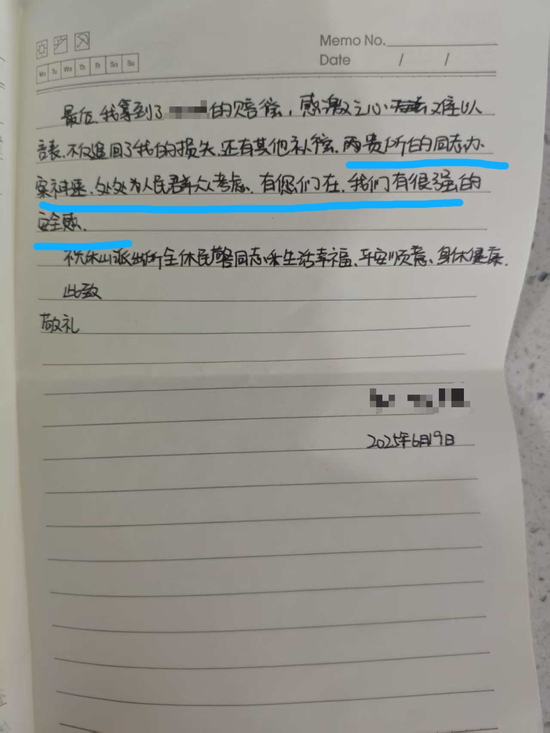 Memo No.
Mo Tu We Th Fr Sa Su
Date / /
最后,我拿到了 的赔偿,感激之心 难以
言表,不仅追回了我的损失,还有其他补偿,而贵所的同志办
案神速,处处为人民群众考虑,有您们在,我们有很强的
安全感.
祝 山派出所全体民警同志 生活幸福、平安顺意、身体健康.
此致
敬礼
2025年6月19日